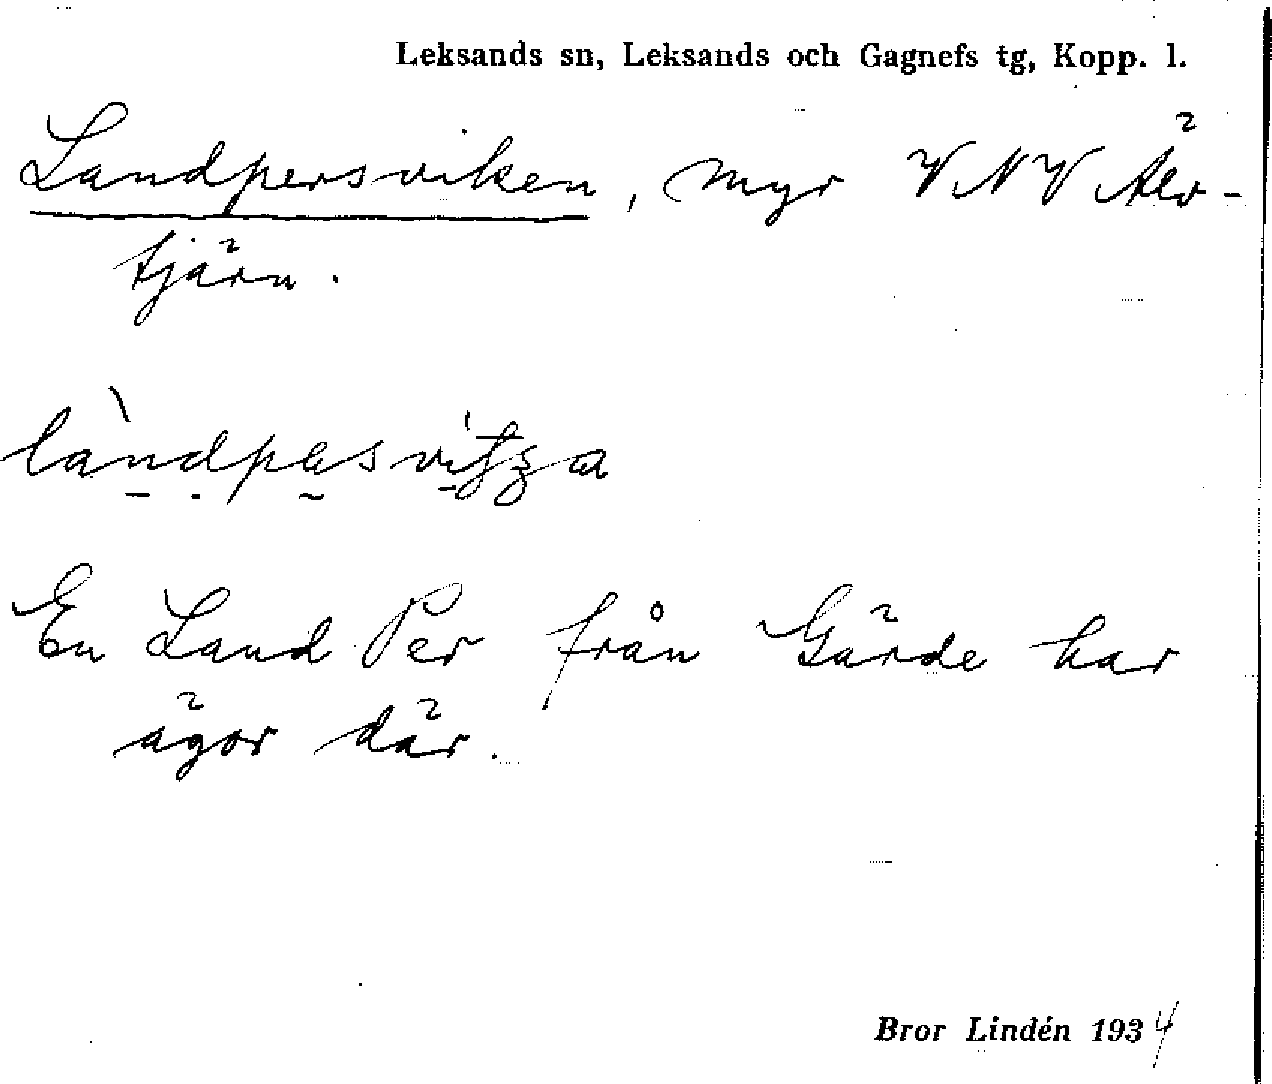 Leksands sn, Leksands och Gagnefs tg, Kopp. l.
Landpersviken, myr VNV Älv-
tjärn.
En Land Per från Gärde har
ägor där.
Bror Lindén 1934